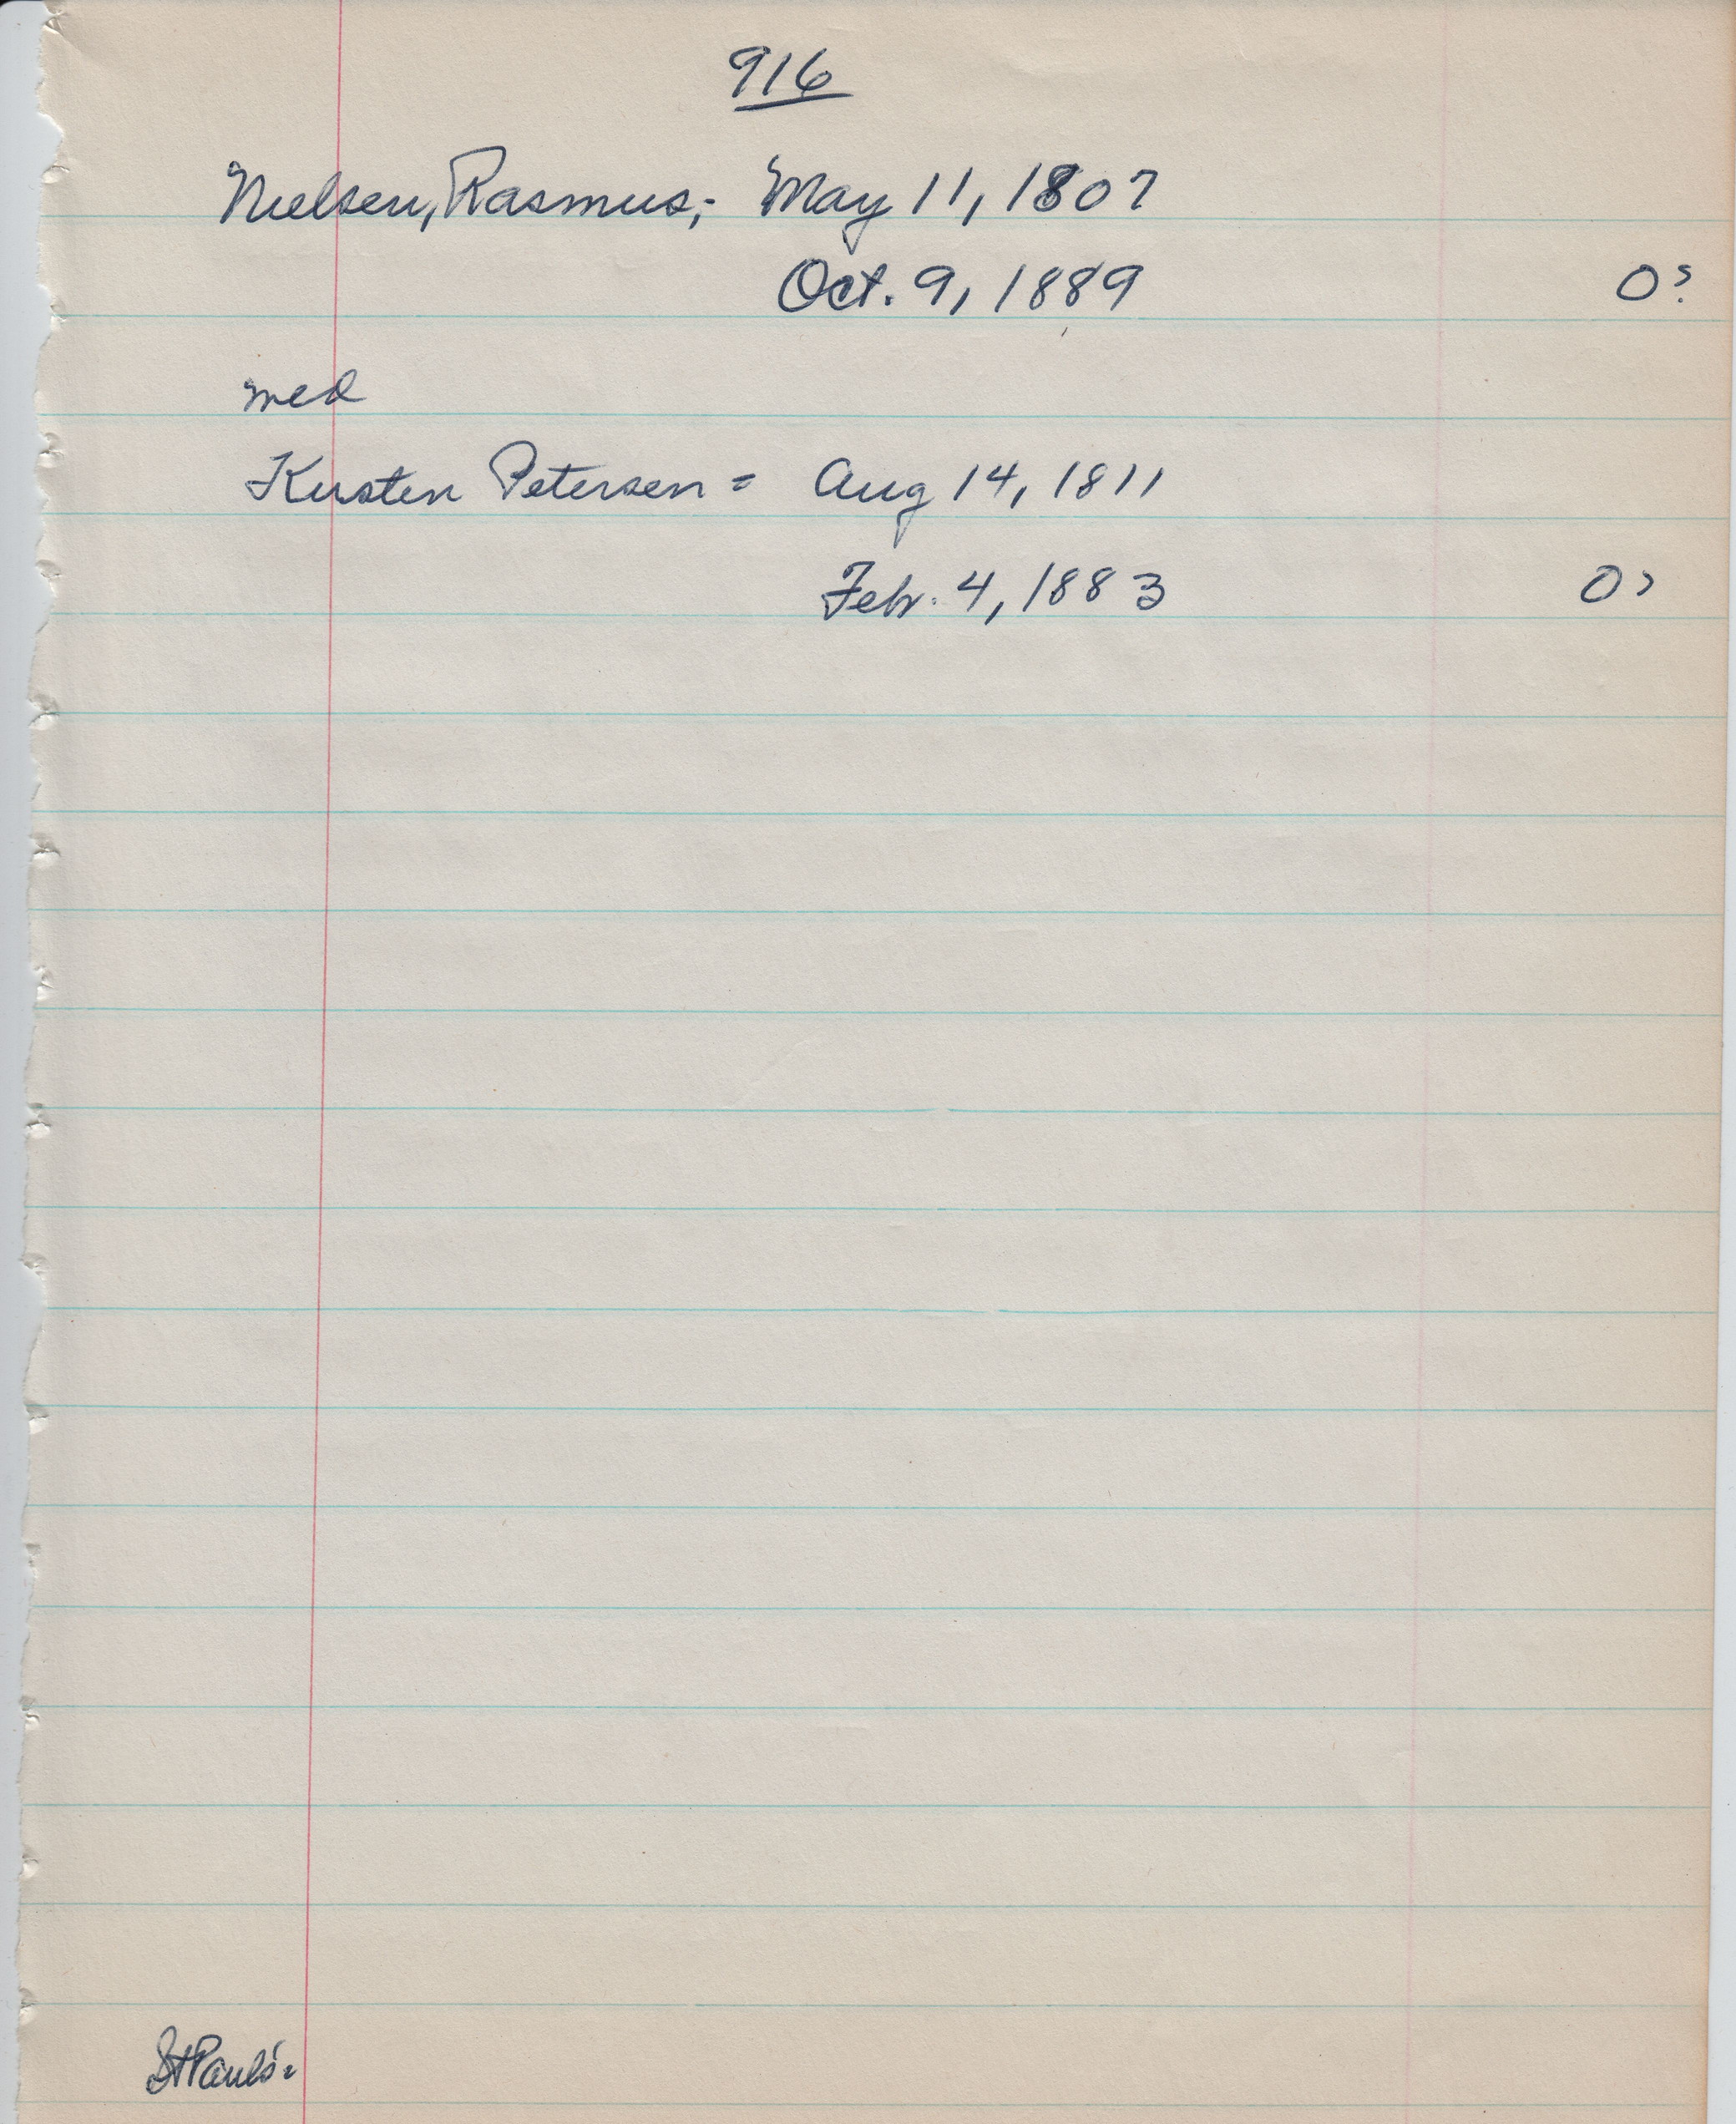 916
Nielsen, Rasmus,- May 11, 1807
Oct. 9, 1889 0?
med
Kirsten Petersen = Aug 14, 1811
Feb. 4, 1883 0?
St Paul's=